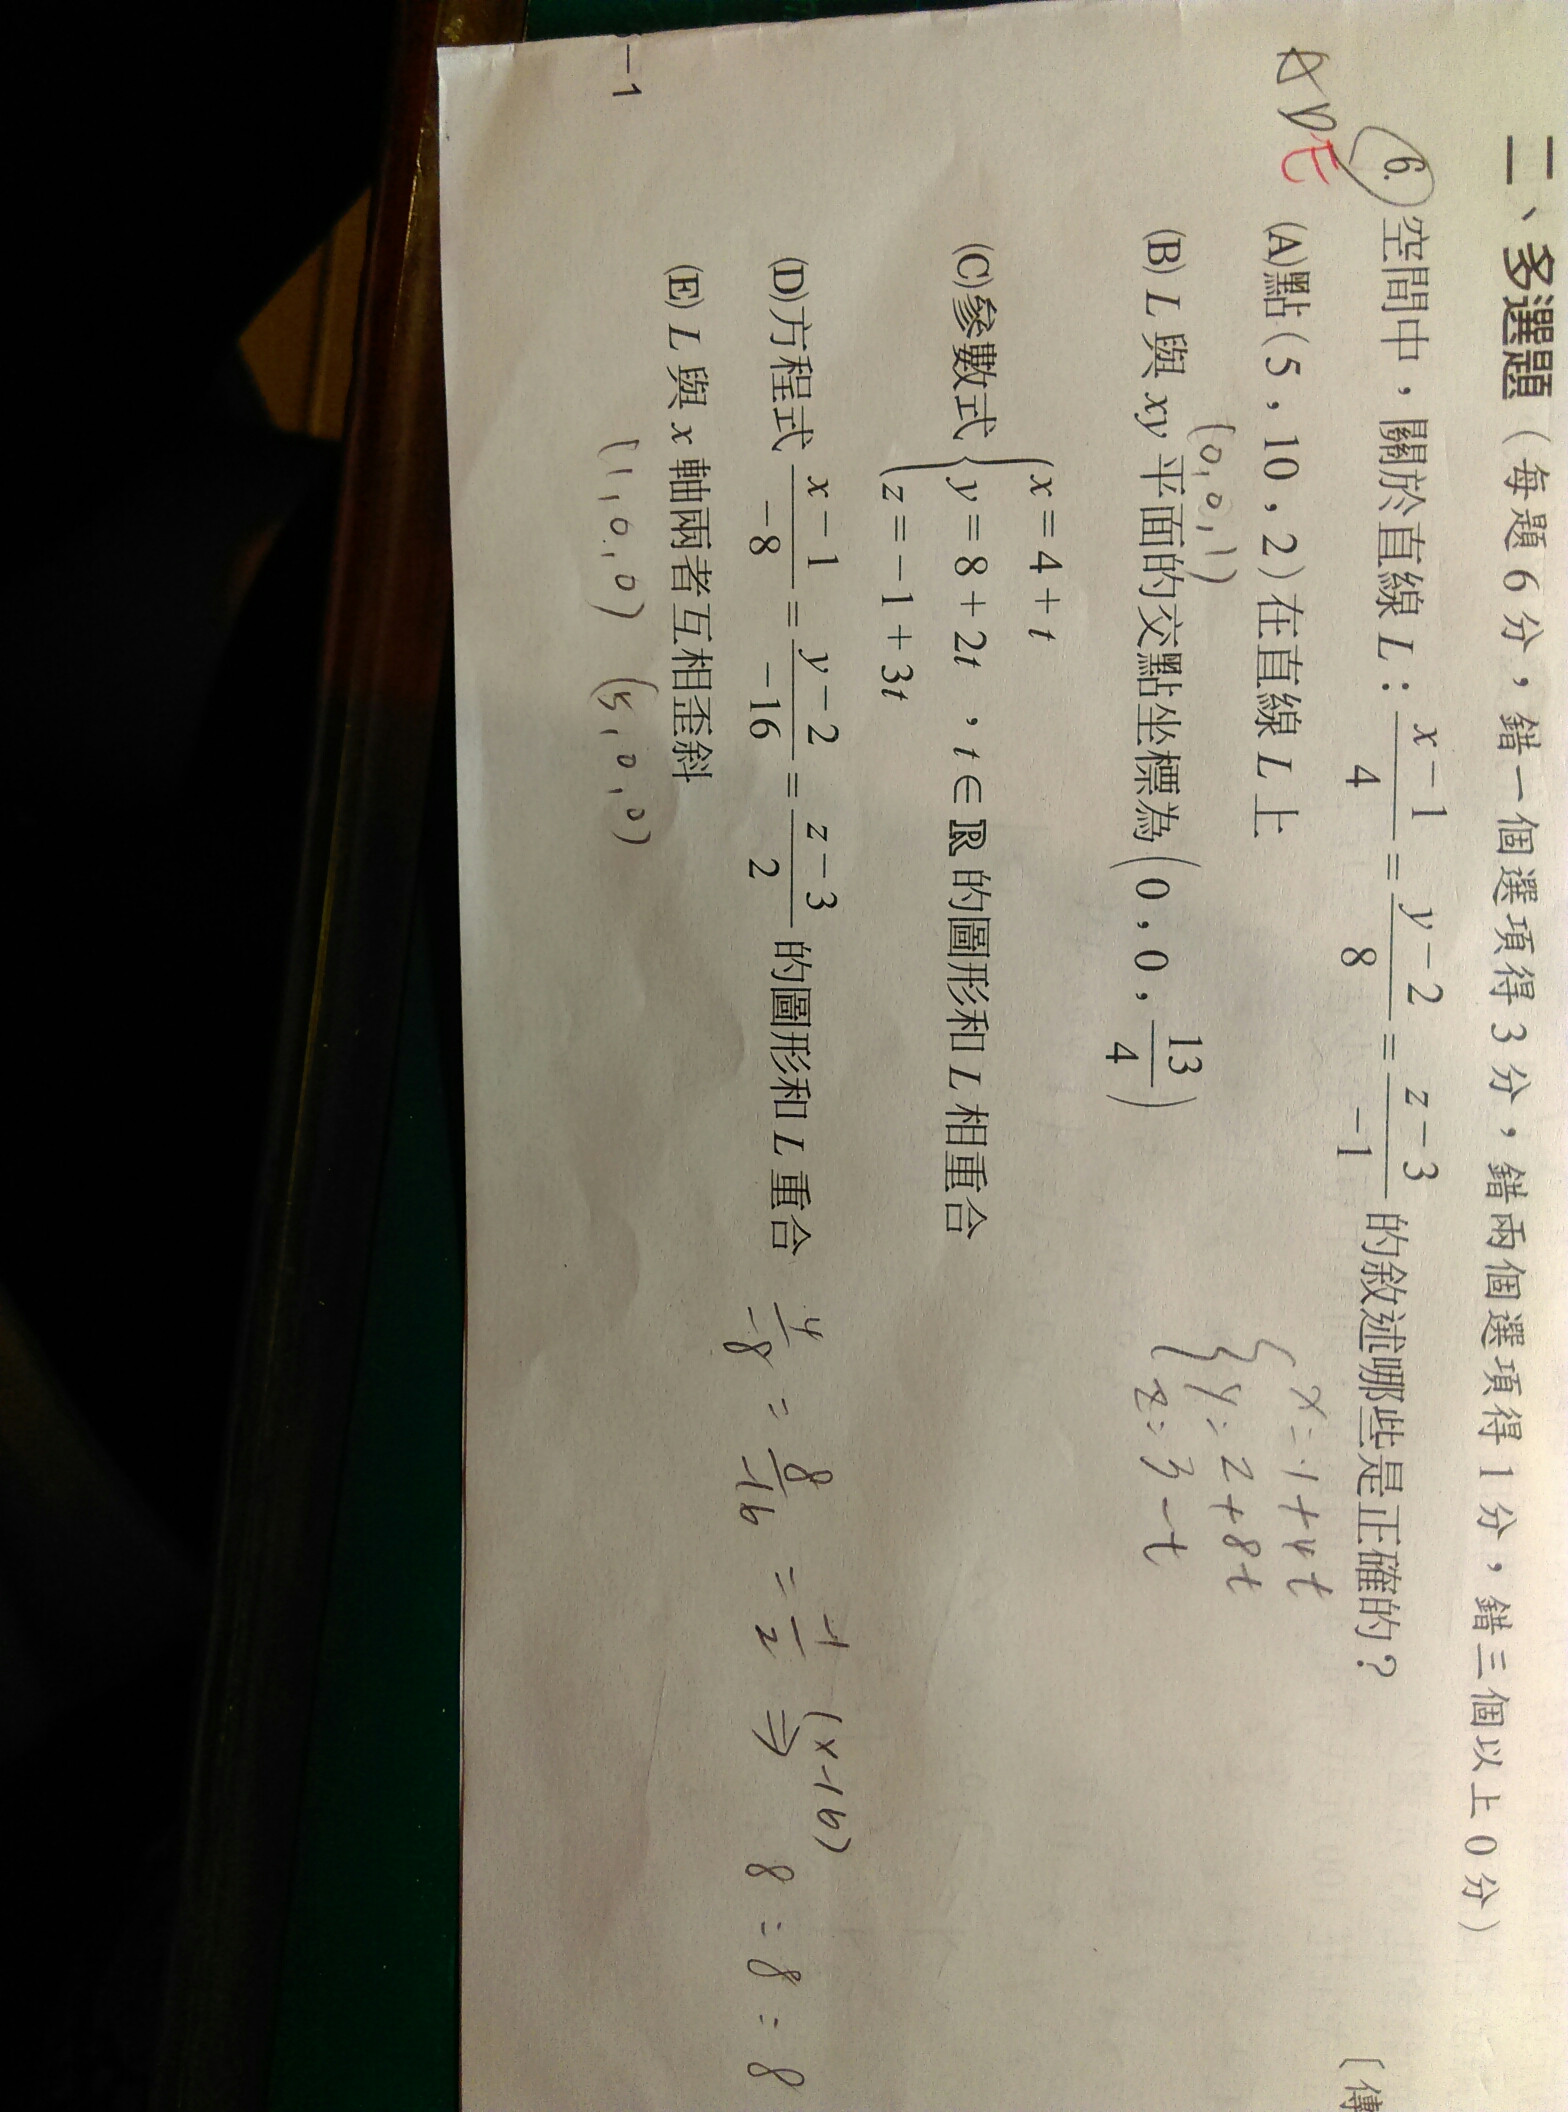 二、多選題（每題 6 分，錯一個選項得 3 分，錯兩個選項得 1 分，錯三個以上 0 分）
〔傳
ADE
6. 空間中，關於直線 L：(x−1)/4 = (y−2)/8 = (z−3)/−1 的敘述哪些是正確的？
(A)點(5，10，2)在直線 L 上
x=1+4t
y=2+8t
z=3−t
(0,0,1)
(B) L 與 xy 平面的交點坐標為(0，0，13/4)
(C)參數式 { x=4+t
y=8+2t ，t∈ℝ 的圖形和 L 相重合
z=−1+3t
(D)方程式 (x−1)/−8 = (y−2)/−16 = (z−3)/2 的圖形和 L 重合
4/−8 = 8/−16 = −1/2 (x−16) ⇒ 8=8=8
(E) L 與 x 軸兩者互相歪斜
(1,0,0) (5,0,0)
−1